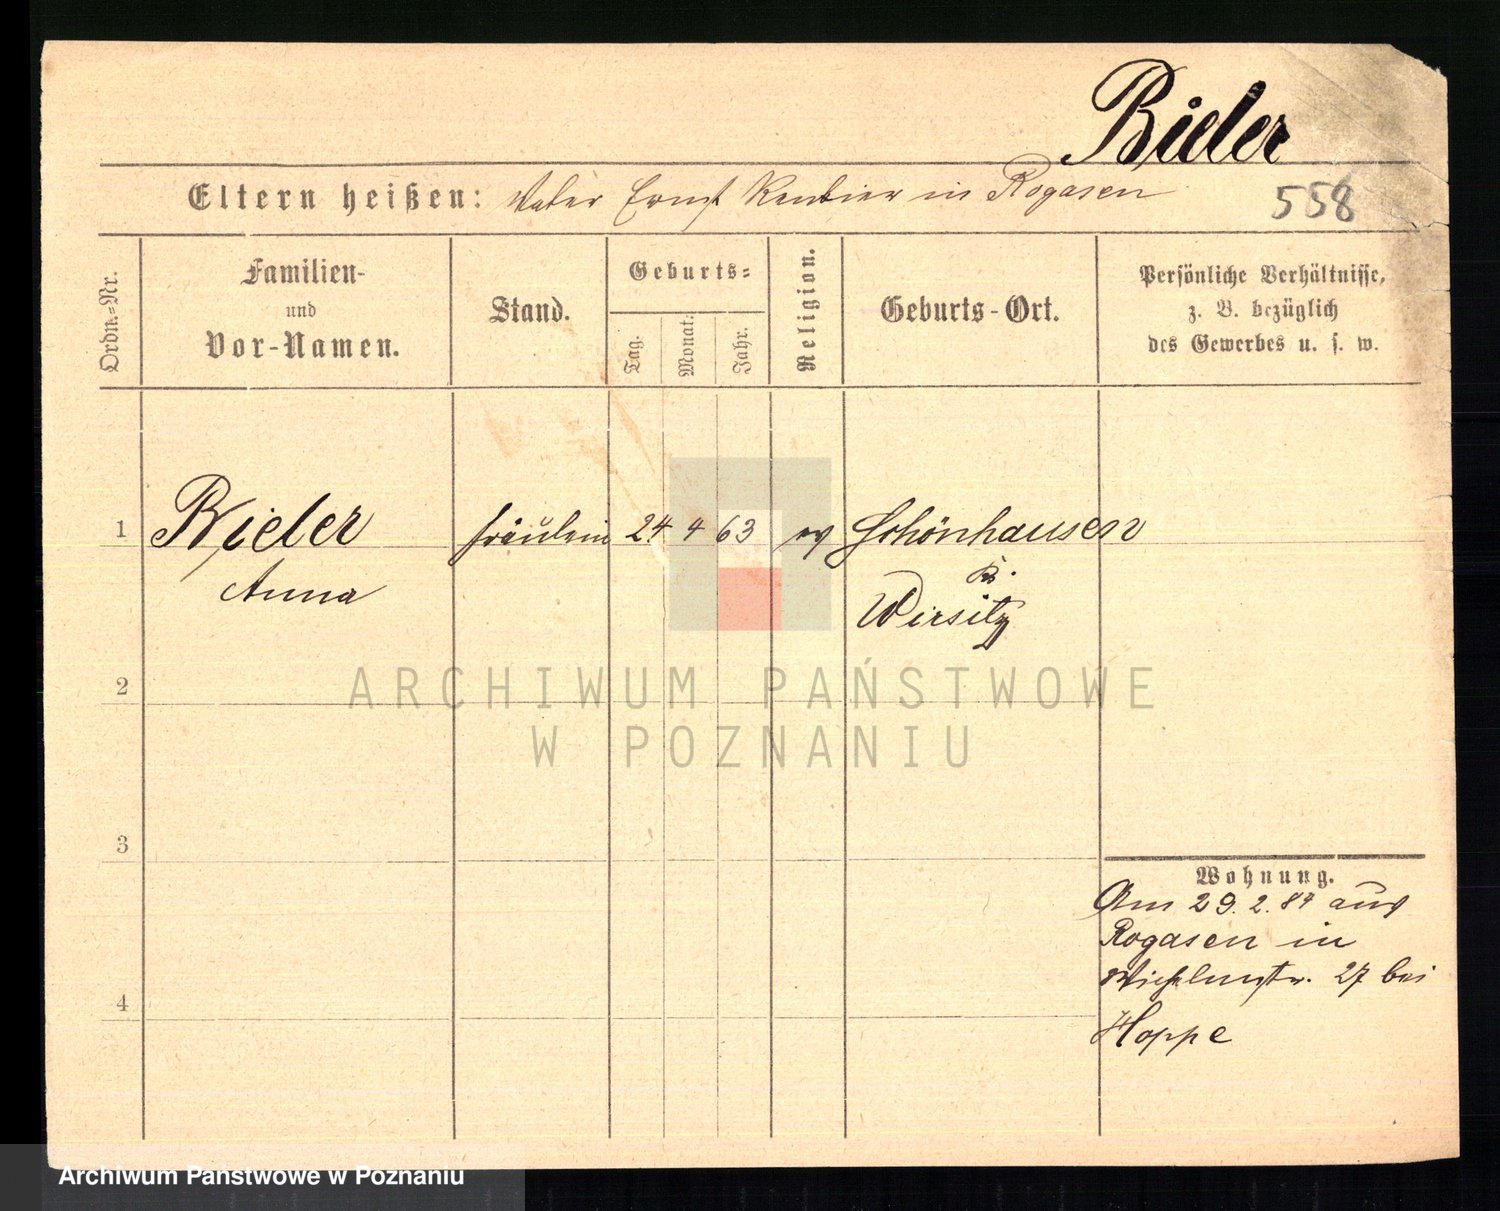 Bieler
Eltern heißen: Vater Ernst Rentier in Rogasen
558
Ordn.=Nr.
Familien-
und
Vor-Namen.
Stand.
Geburts=
Tag.
Monat.
Jahr.
Religion.
Geburts-Ort.
Persönliche Verhältnisse,
z. B. bezüglich
des Gewerbes u. s. w.
1 Bieler Fräulein 24 4 63 ev Schönhausen
Anna Wirsitz
2
ARCHIWUM PAŃSTWOWE
W POZNANIU
3
4
Wohnung.
Am 29.2.84 aus
Rogasen in
27 bei
Hoppe
Archiwum Państwowe w Poznaniu